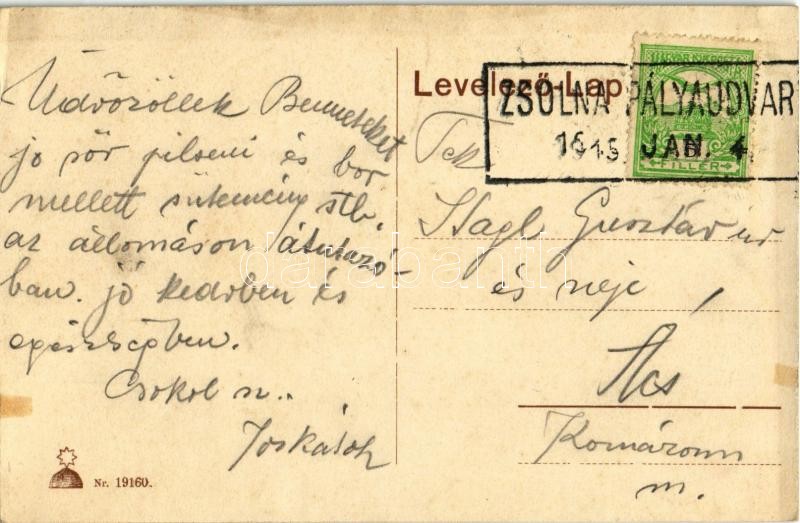 Üdvözöllek Benneteket
jó sör pilseni és bor
mellett sütemény stb.
az állomáson átutazó-
ban. jó kedvben és
egészségben.
Csokol n..
Joskátok
Nr. 19160.
Levelező-Lap
ZSOLNA PÁLYAUDVAR
1915 JAN. 4.
FILLÉR
Tek
Nagl Gusztáv ur
és neje,
Ács
Komárom
m.
darabanth